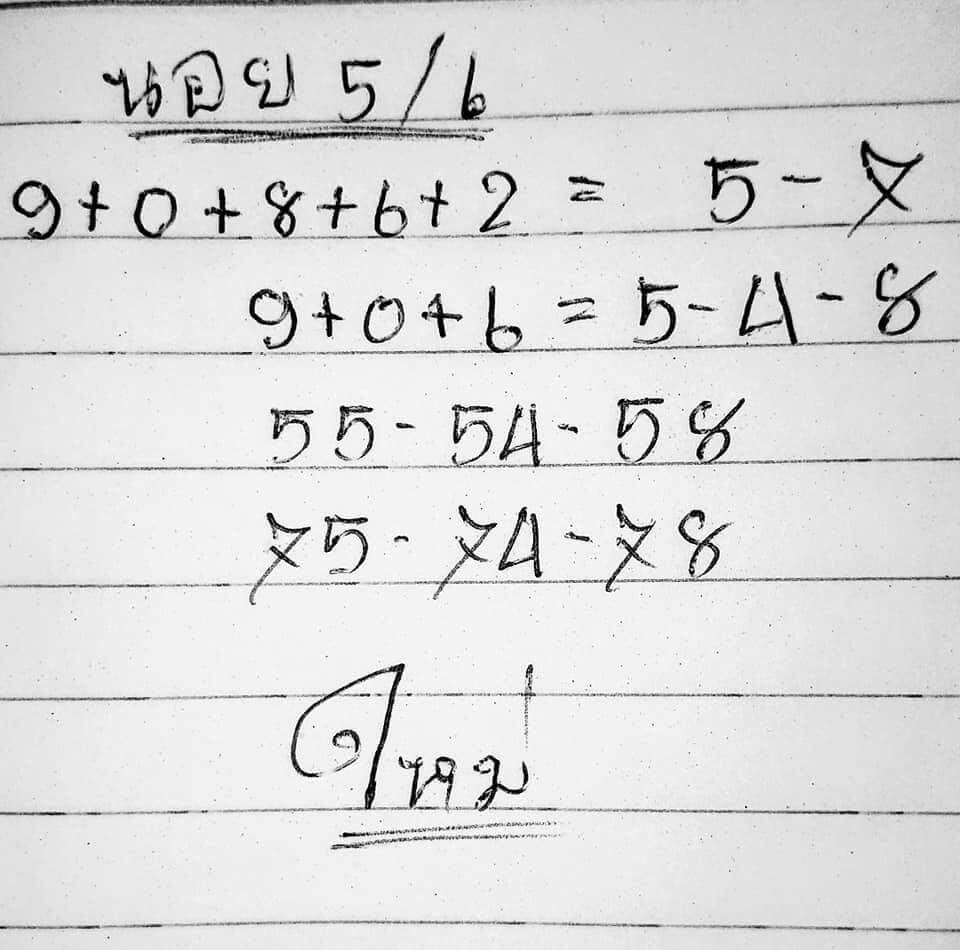 นอย 5/6
9+0+8+6+2 = 5-7
9+0+6 = 5-4-8
55-54-58
75-74-78
ใหม่